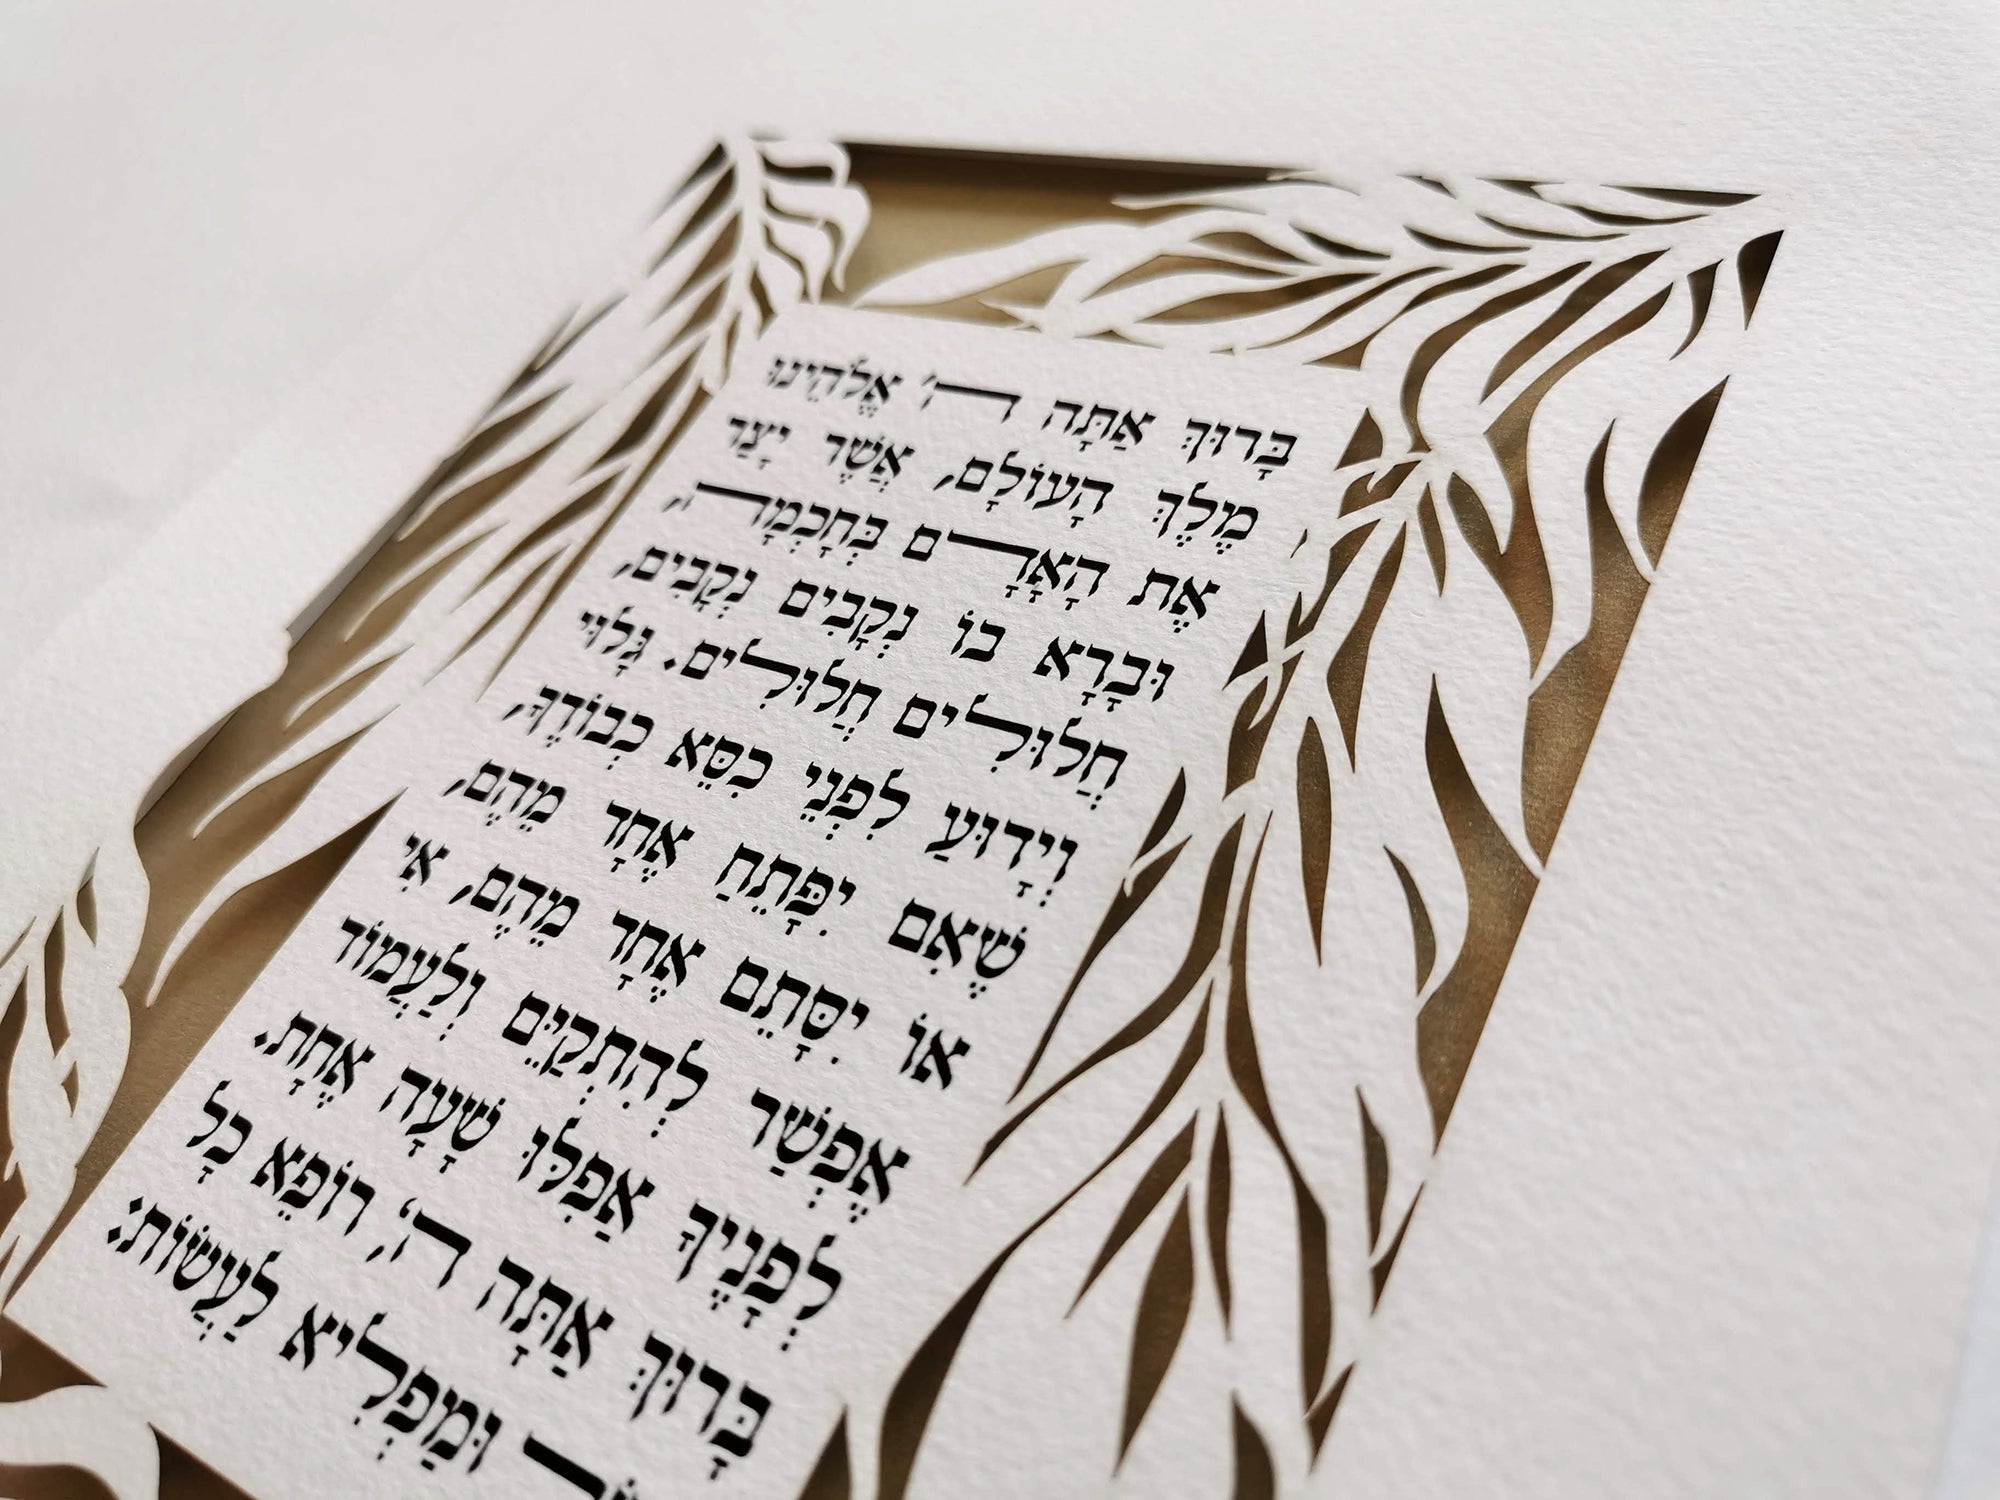 בָּרוּךְ אַתָּה ה' אֱלֹהֵינוּ
מֶלֶךְ הָעוֹלָם, אֲשֶׁר יָצַר
אֶת הָאָדָם בְּחָכְמָה,
וּבָרָא בוֹ נְקָבִים נְקָבִים,
חֲלוּלִים חֲלוּלִים. גָּלוּי
וְיָדוּעַ לִפְנֵי כִסֵּא כְבוֹדֶךָ,
שֶׁאִם יִפָּתֵחַ אֶחָד מֵהֶם,
אוֹ יִסָּתֵם אֶחָד מֵהֶם, אִי
אֶפְשַׁר לְהִתְקַיֵּם וְלַעֲמוֹד
לְפָנֶיךָ אַפִלּוּ שָׁעָה אֶחָת.
בָּרוּךְ אַתָּה ה', רוֹפֵא כָל
וּמַפְלִיא לַעֲשׂוֹת: